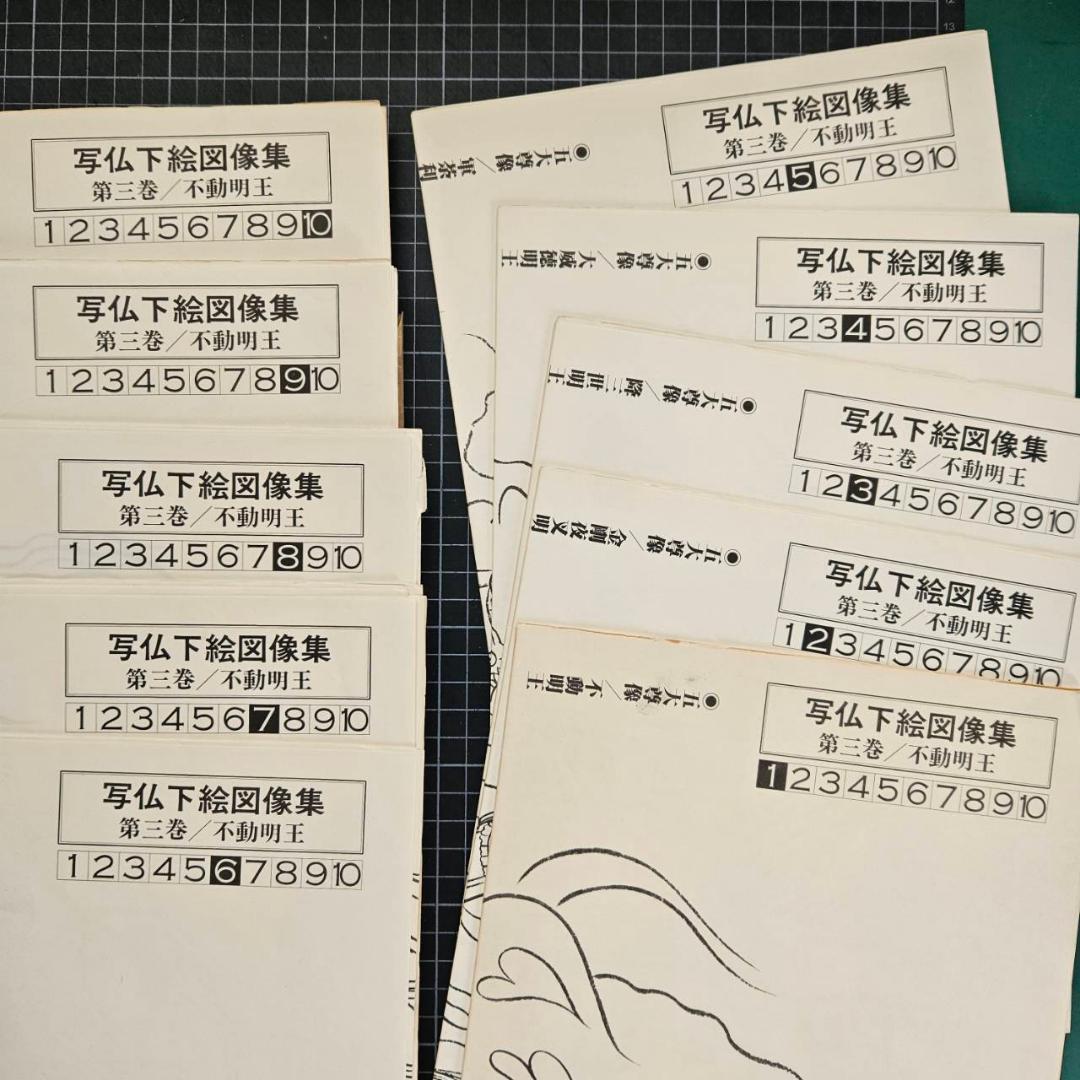 写仏下絵図像集
第三巻／不動明王
1 2 3 4 5 6 7 8 9 10
写仏下絵図像集
第三巻／不動明王
1 2 3 4 5 6 7 8 9 10
写仏下絵図像集
第三巻／不動明王
1 2 3 4 5 6 7 8 9 10
写仏下絵図像集
第三巻／不動明王
1 2 3 4 5 6 7 8 9 10
写仏下絵図像集
第三巻／不動明王
1 2 3 4 5 6 7 8 9 10
13
●五大尊像／軍荼利
写仏下絵図像集
第三巻／不動明王
1 2 3 4 5 6 7 8 9 10
●五大尊像／大威徳明王
写仏下絵図像集
第三巻／不動明王
1 2 3 4 5 6 7 8 9 10
●五大尊像／降三世明王
写仏下絵図像集
第三巻／不動明王
1 2 3 4 5 6 7 8 9 10
●五大尊像／金剛夜叉明
写仏下絵図像集
第三巻／不動明王
1 2 3 4 5 6 7 8 9 10
●五大尊像／不動明王
写仏下絵図像集
第三巻／不動明王
1 2 3 4 5 6 7 8 9 10